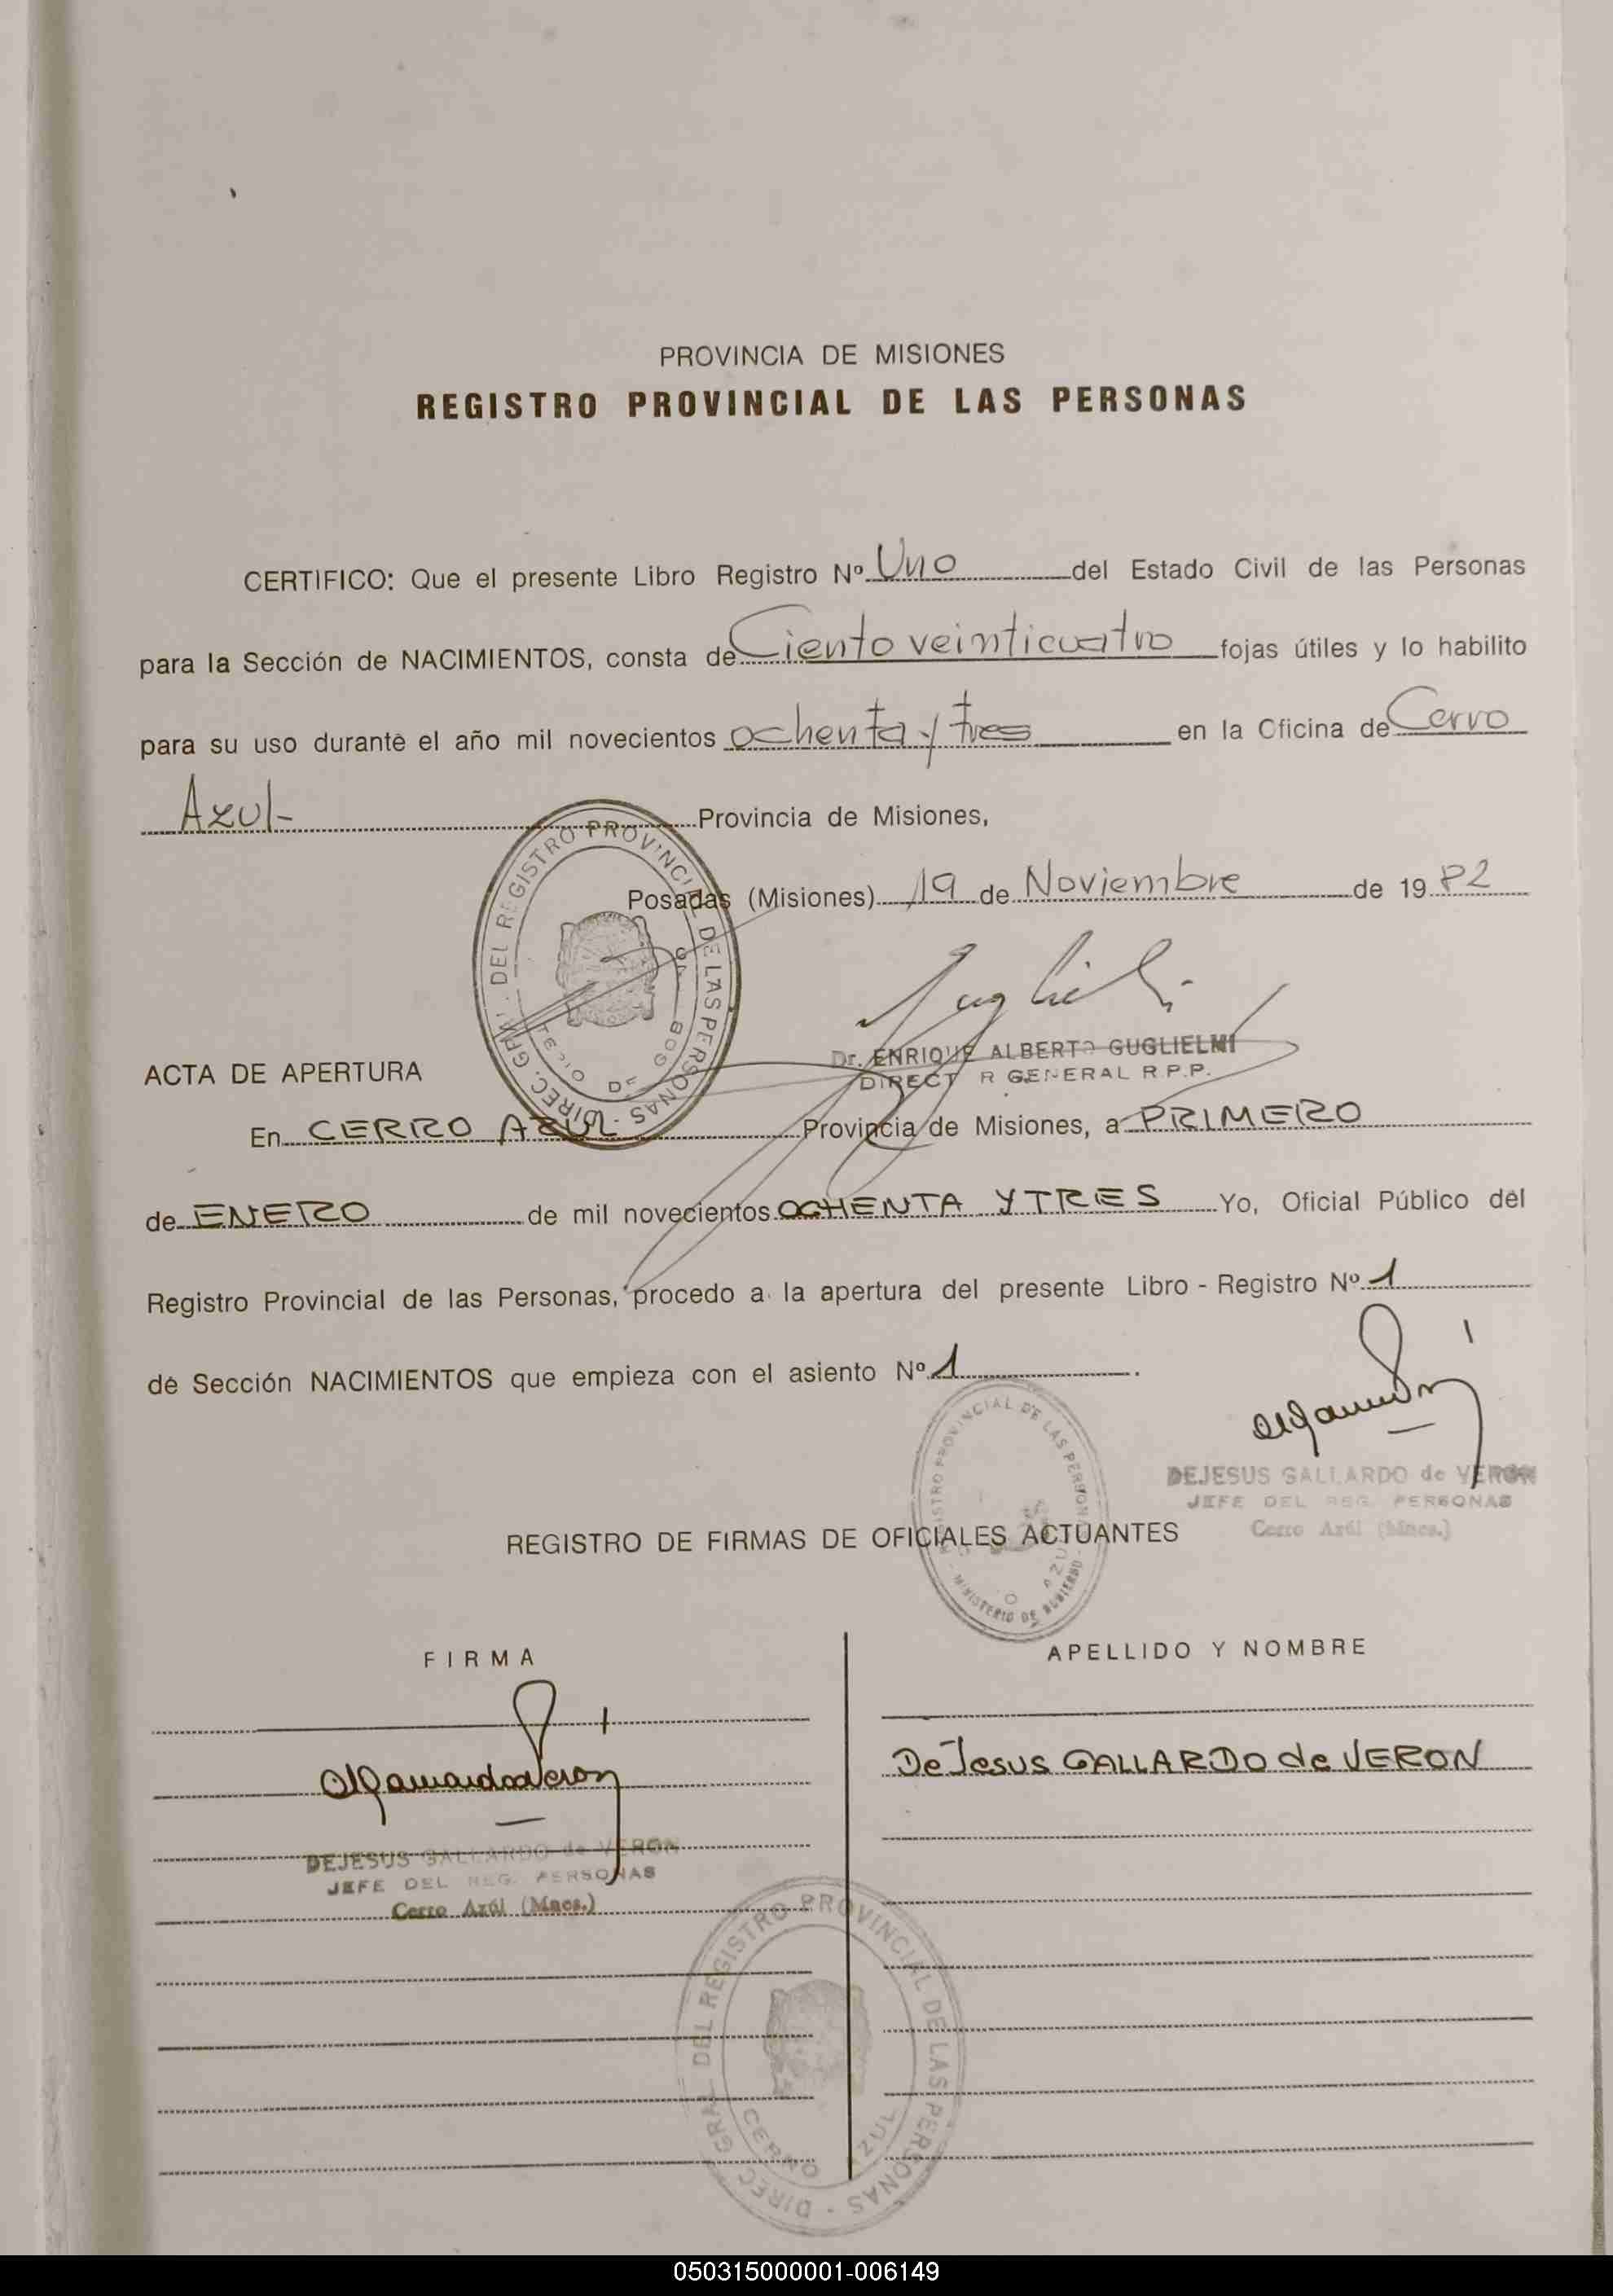 PROVINCIA DE MISIONES
REGISTRO PROVINCIAL DE LAS PERSONAS
CERTIFICO: Que el presente Libro Registro Nº Uno del Estado Civil de las Personas
para la Sección de NACIMIENTOS, consta de Ciento veinticuatro fojas útiles y lo habilito
para su uso durante el año mil novecientos ochenta y tres en la Oficina de Cerro
Azul- Provincia de Misiones,
Posadas (Misiones) 19 de Noviembre de 19 82
DIREC. GRAL. DEL REGISTRO PROVINCIAL DE LAS PERSONAS
Dr. ENRIQUE ALBERTO GUGLIELMI
DIRECTOR GENERAL R.P.P.
ACTA DE APERTURA
En CERRO AZUL Provincia de Misiones, a PRIMERO
de ENERO de mil novecientos OCHENTA Y TRES Yo, Oficial Público del
Registro Provincial de las Personas, procedo a la apertura del presente Libro - Registro Nº 1
de Sección NACIMIENTOS que empieza con el asiento Nº 1.
DEJESUS GALLARDO de VERON
JEFE DEL REG. PERSONAS
Cerro Azúl (Mnes.)
REGISTRO PROVINCIAL DE LAS PERSONAS
MINISTERIO DE GOBIERNO
REGISTRO DE FIRMAS DE OFICIALES ACTUANTES
FIRMA APELLIDO Y NOMBRE
De Jesus GALLARDO de VERON
DEJESUS GALLARDO de VERON
JEFE DEL REG. PERSONAS
Cerro Azúl (Mnes.)
DIREC. GRAL. DEL REGISTRO PROVINCIAL DE LAS PERSONAS
CERRO AZUL
050315000001-006149